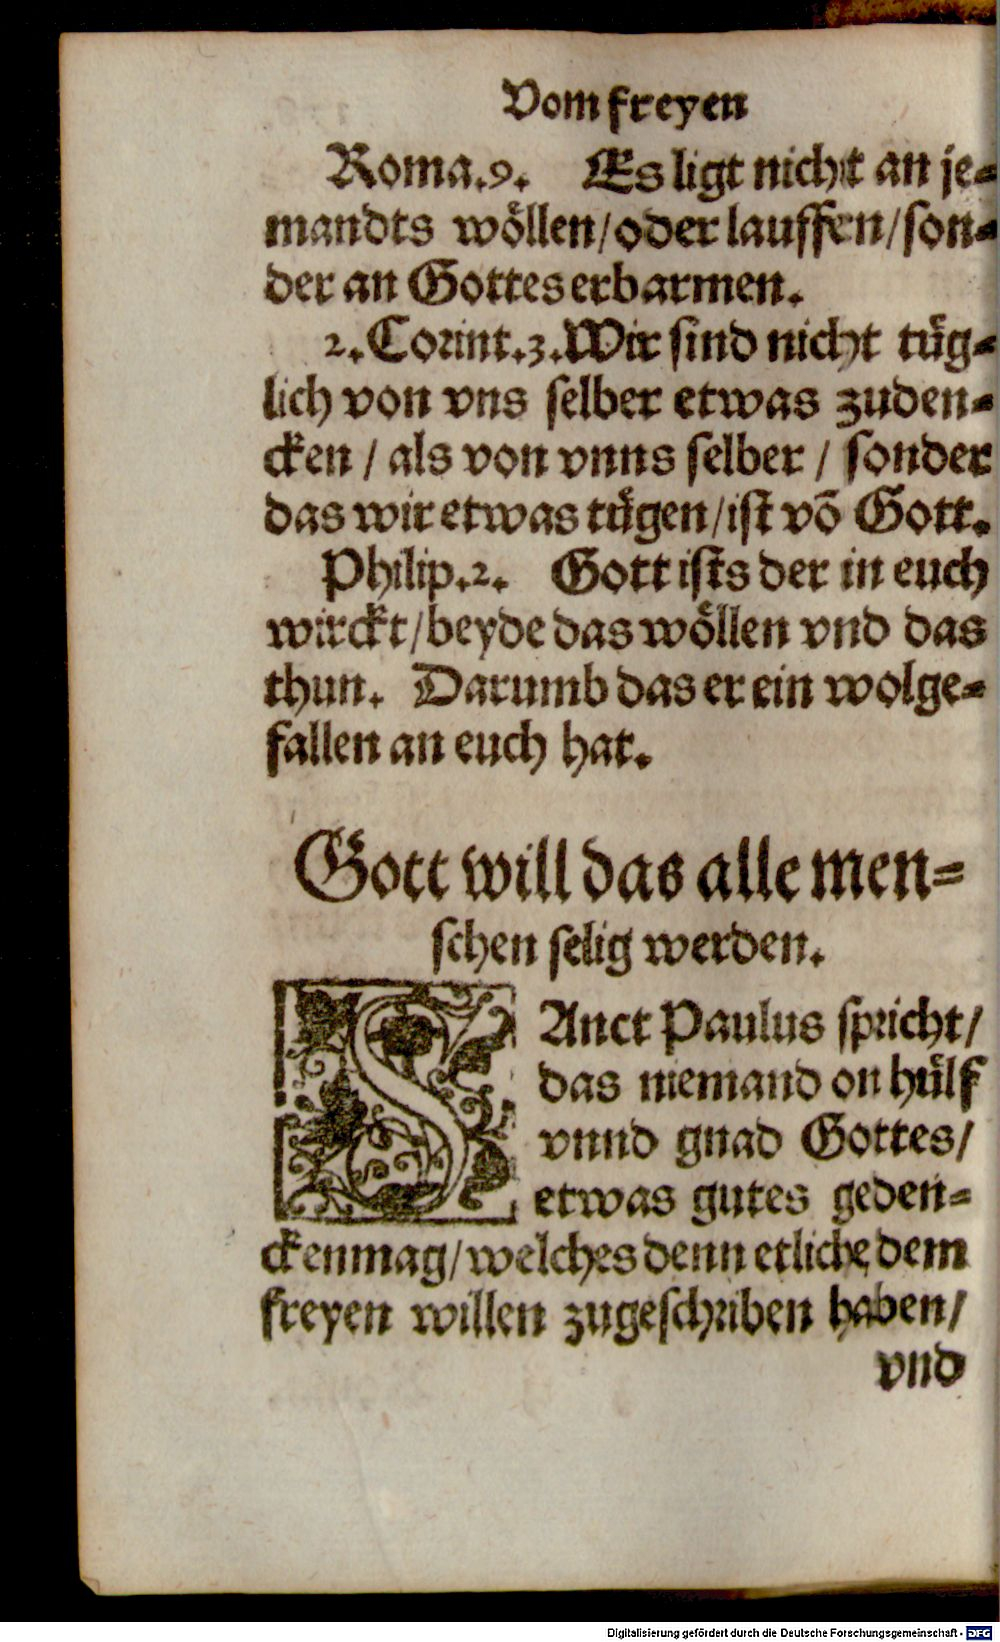 Vom freyen
Roma.9. Es ligt nicht an je-
mandts wöllen/oder lauffen/son-
der an Gottes erbarmen.
2.Corint.3.Wir sind nicht tüg-
lich von vns selber etwas zuden-
cken / als von vnns selber / sonder
das wir etwas tügen/ist võ Gott.
Philip.2. Gott ists der in euch
wirckt/beyde das wöllen vnd das
thun. Darumb das er ein wolge-
fallen an euch hat.
Gott will das alle men-
schen selig werden.
SAnct Paulus spricht/
das niemand on hülf
vnnd gnad Gottes/
etwas gutes geden-
cken mag/welches denn etliche dem
freyen willen zugeschriben haben/
vnd
Digitalisierung gefördert durch die Deutsche Forschungsgemeinschaft - DFG